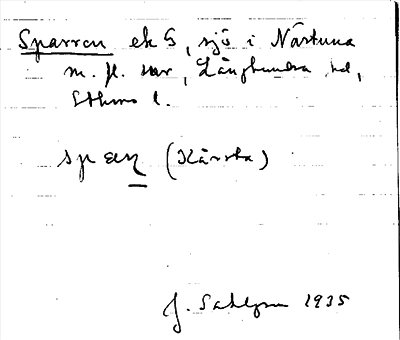 Sparren ek 5, sjö i Närtuna
m. fl. snr, Långhundra hd,
Sthms l.
spaɳ (Kårsta)
J. Sahlgren 1935